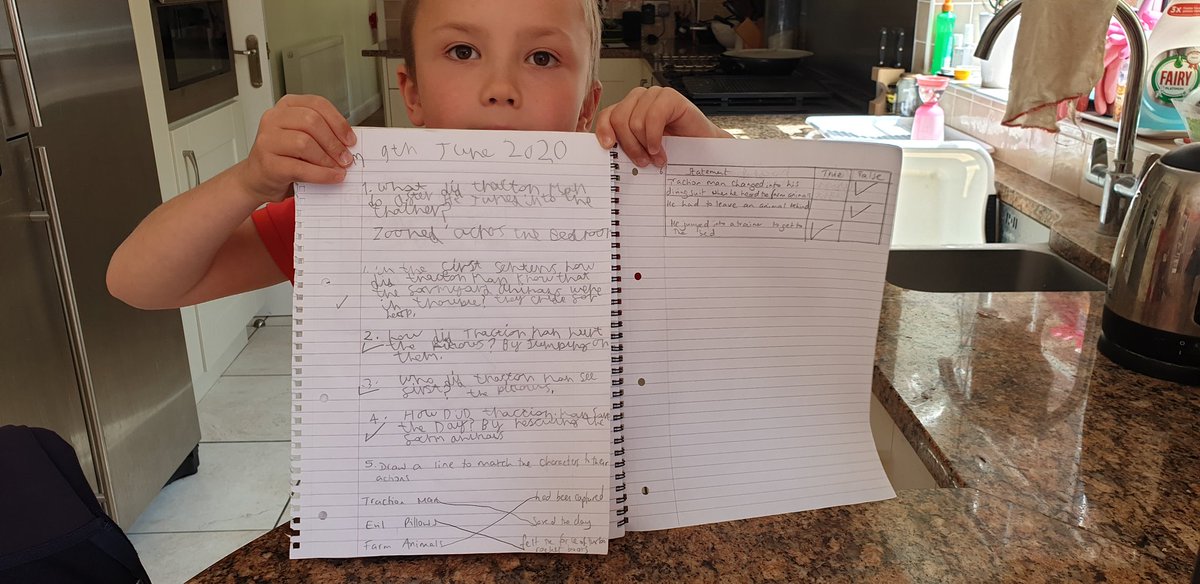 9th June 2020
1. What did traction man
do after he Jumps into the
Zoomed across the Bedroom
1. in the first sentens how
did traction man know that
the farmyard animals were
in trouble? they cride for
help.
2. how did Traction man hurt
the pillows? By Jumping on
them.
3. who did traction man see
first? the pillows.
4. How DiD traction man Save
the Day? By rescuing the
farm animals
5. Draw a line to match the characters to their
actions
Traction Man had been captured
Evil Pillows Saved the day
Farm Animals felt the force of
rocket boots
Statement True False
Traction man changed into his
diving suit when he heard the farm animals
He had to leave an animal behind
He jumped into a trainer to get to
the bed
FAIRY
PLATINUM
3x